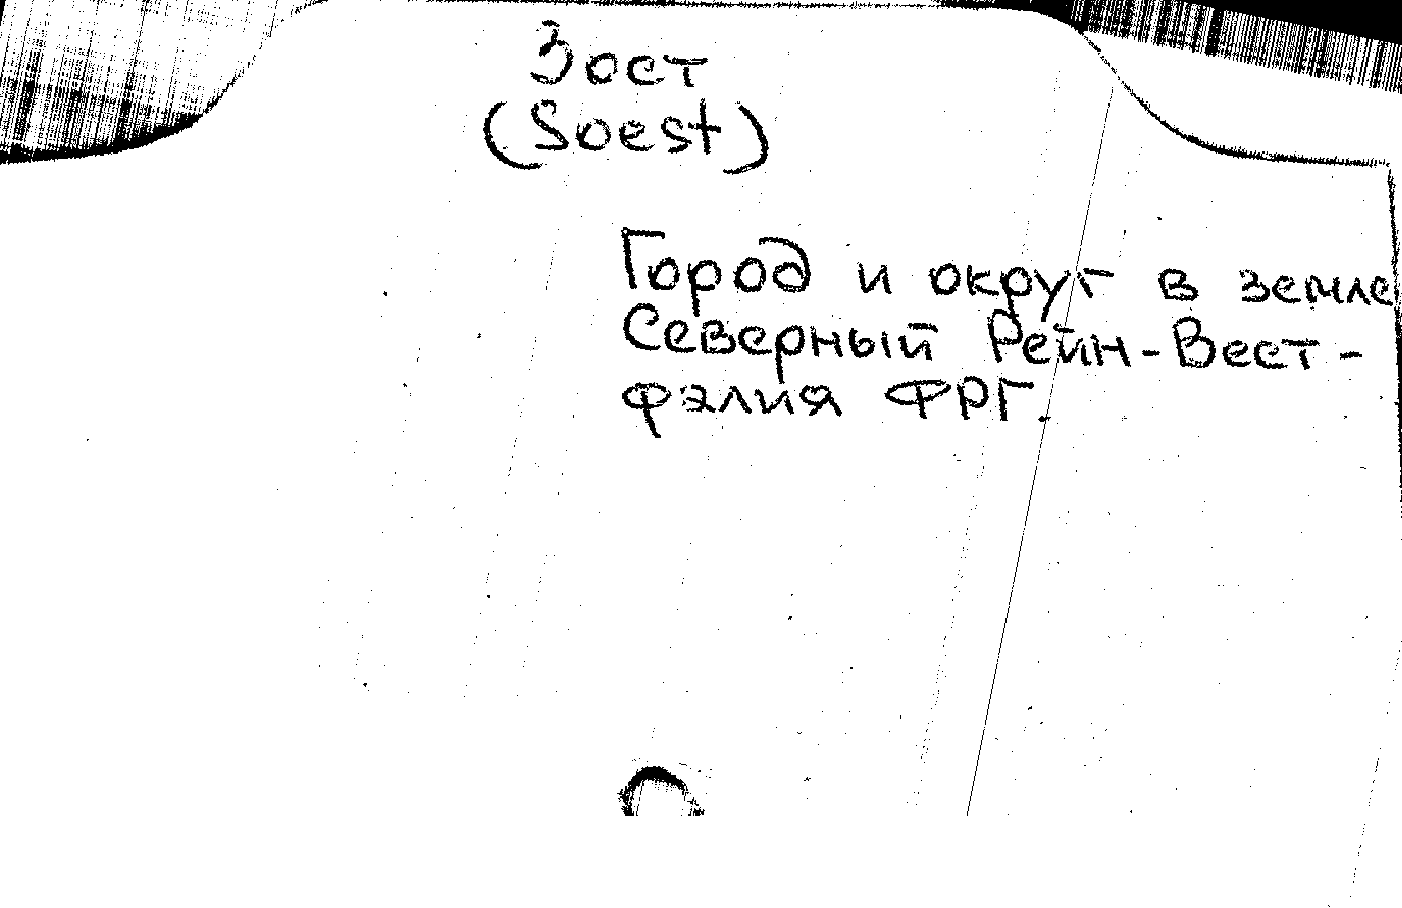 Зост
(Soest)
Город и округ в земле
Северный Рейн-Вест-
фэлия ФРГ.